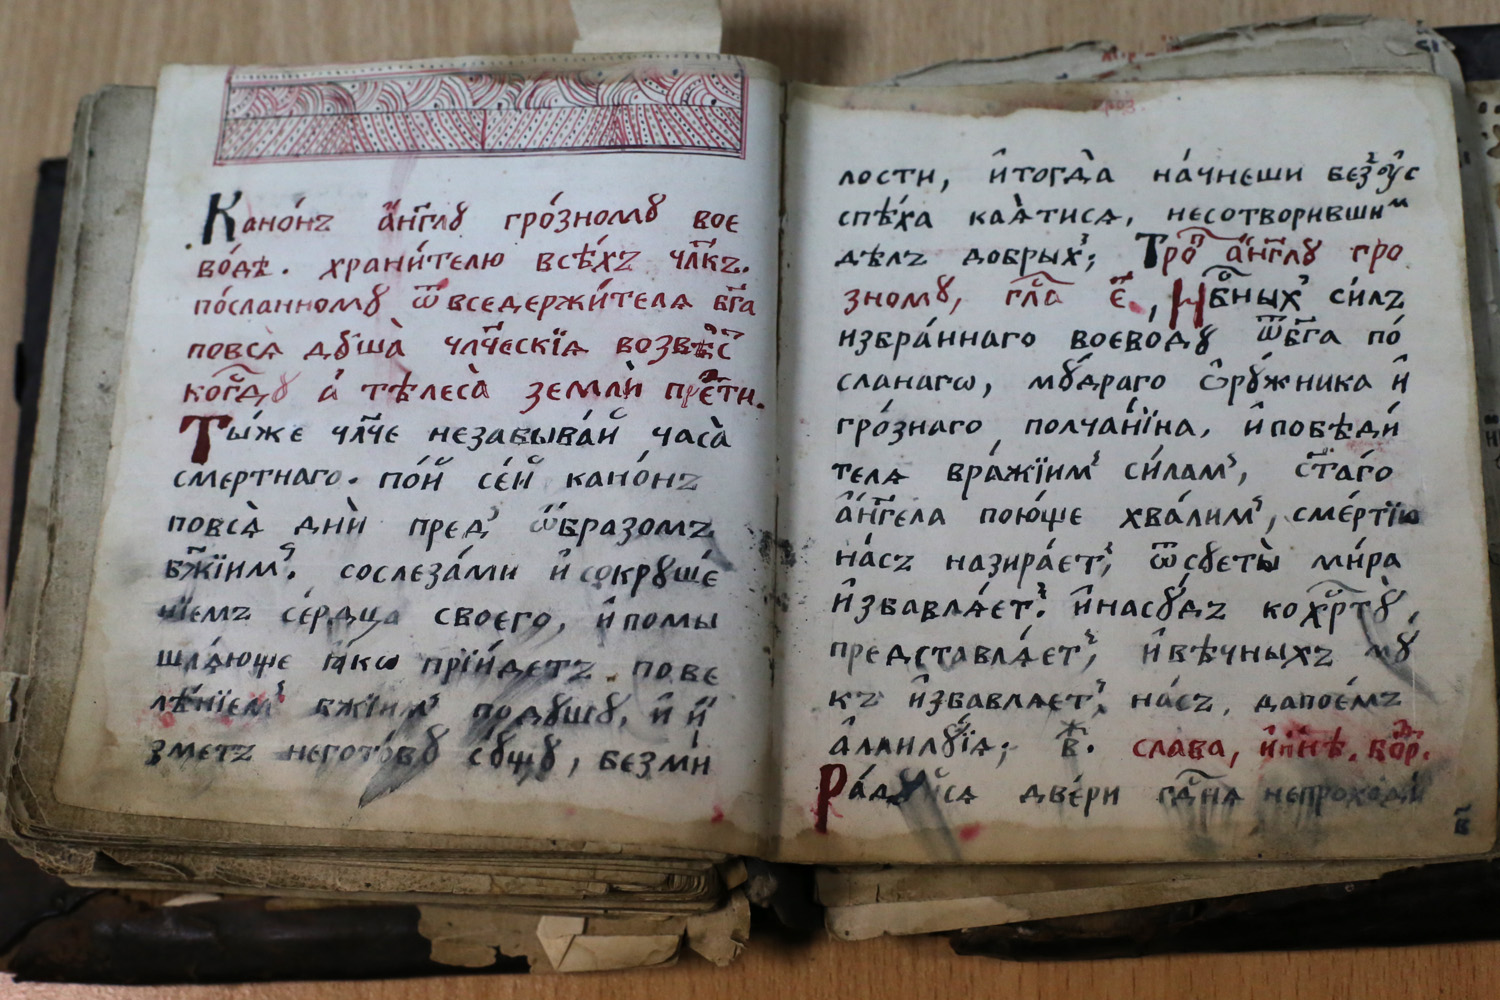 Канѡ́нъ а҆́гг҃лꙋ гро́зномꙋ вое
во́дѣ. храни́телю всѣ́хъ чл҃къ.
по́сланномꙋ ѿ вседержи́телѧ бг҃а
повсѧ̀ дꙋ́ша̀ чл҃ческїѧ возвѣс
когдꙋ а҆ тѣлеса̀ землѝ
Ты́же чл҃че незабыва́й часа̀
смертнаго. по́й се́й кано́нъ
повсѧ̀ днѝ пред̾ ѡ҆́бразомъ
бж҃їим̾. сослеза́ми и҆ сокрꙋше́
нїемъ се́рдца своего, и҆помы
шлѧ́юще ꙗ҆́кѡ прїи́детъ пове
лѣ́нїем̾ бж҃їим̾ подꙋшꙋ, и҆ и҆́
зметъ негото́вꙋ сꙋ́щꙋ, безми́
лости, и҆тогда̀ на́чнеши без̾ꙋс
спѣ́ха каѧ́тисѧ, несотворивши
дѣлъ добрых̾; Тро а҆́гг҃лꙋ гро
зномꙋ, гла́ є҃, Нб҃ных̾ си́лъ
избра́ннаго воеводꙋ ѿбг҃а по́
сланагѡ, мꙋ́драго ѡ҆рꙋ́жника и҆
гро́знаго полча́нїна, и҆побѣди́
телѧ вра́жїим̾ си́лам̾, ст҃а́го
а҆́гг҃ела пою́ще хва́лим̾, сме́ртїю
на́съ назира́ет̾, ѿсꙋеты̀ ми́ра
и҆збавлѧ́ет̾. и҆насꙋ́дъ кохр҃тꙋ̀,
представлѧ́ет̾, и҆вѣ́чныхъ мꙋ́
къ и҆збавлѧет̾ на́съ, дапое́мъ
а҆ллилꙋ́їѧ; в҃ж. слава, и҆нн҃ѣ. бо҃р.
Ра́дꙋйсѧ две́ри гд҃нѧ непроходи́
в҃і